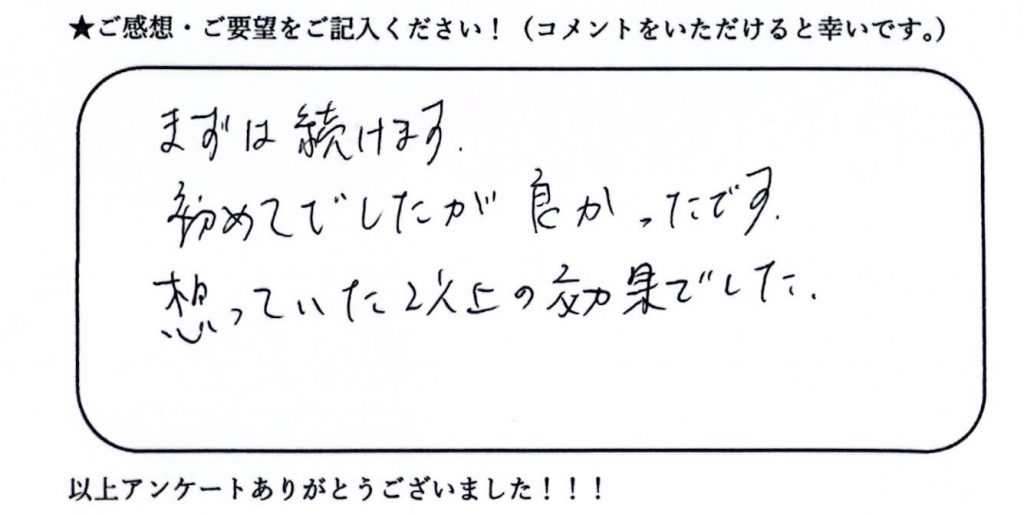 ★ご感想・ご要望をご記入ください！（コメントをいただけると幸いです。）
まずは続けます.
初めてでしたが良かったです.
想っていた以上の効果でした.
以上アンケートありがとうございました！！！